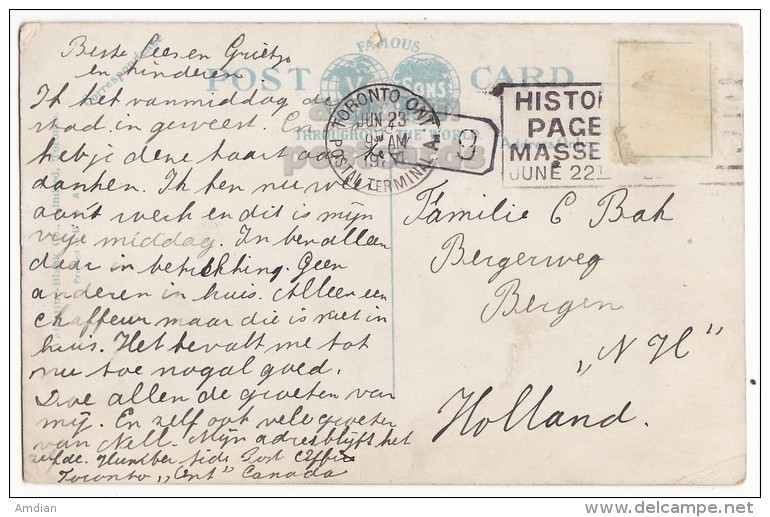 Beste Cees en Grietje
en kinderen
FAMOUS
POST CARD
V. & SONS
THROUGHOUT THE WORLD
Correspondence
TORONTO, ONT.
JUN 23
9 AM
POSTAL TERMINAL A
HISTO
PAGE
MASSE
JUNE 22
Ik het vanmiddag de
stad in geweest. 
hebje deze kaart aan
danken. Ik ben nu weer
aan't werk en dit is mijn
vrije middag. In ben alleen
daar in betrekking. Geen
anderen in huis. Alleen een
chaffeur maar die is niet in
huis. Het bevalt me tot
nu toe nogal goed.
Doe allen de groeten van
mij. En zelf ook vele groeten
van Nell. Mijn adres blijft het
zelfde. Humber side Post Office
Toronto „Ont" Canada
Familie C Bak
Bergerweg
Bergen
„N H"
Holland.
Amdian
delcampe.net